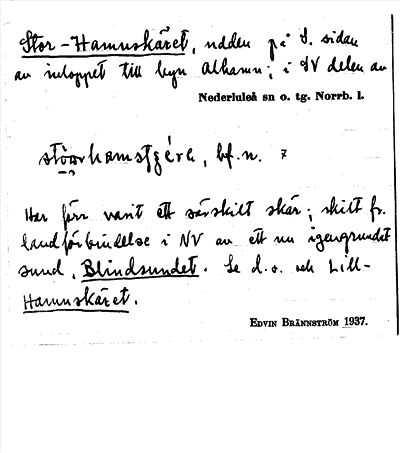 Stor-Hamnskäret, udden på S. sidan
av inloppet till byn Alhamn; i SV delen av
Nederluleå sn o. tg. Norrb. l.
bf. n. 7
Har förr varit ett särskilt skär; skilt fr.
landförbindelse i NV av ett nu igengrundat
sund, Blindsundet. Se d. o. och Lill-
Hamnskäret.
EDVIN BRÄNNSTRÖM 1937.